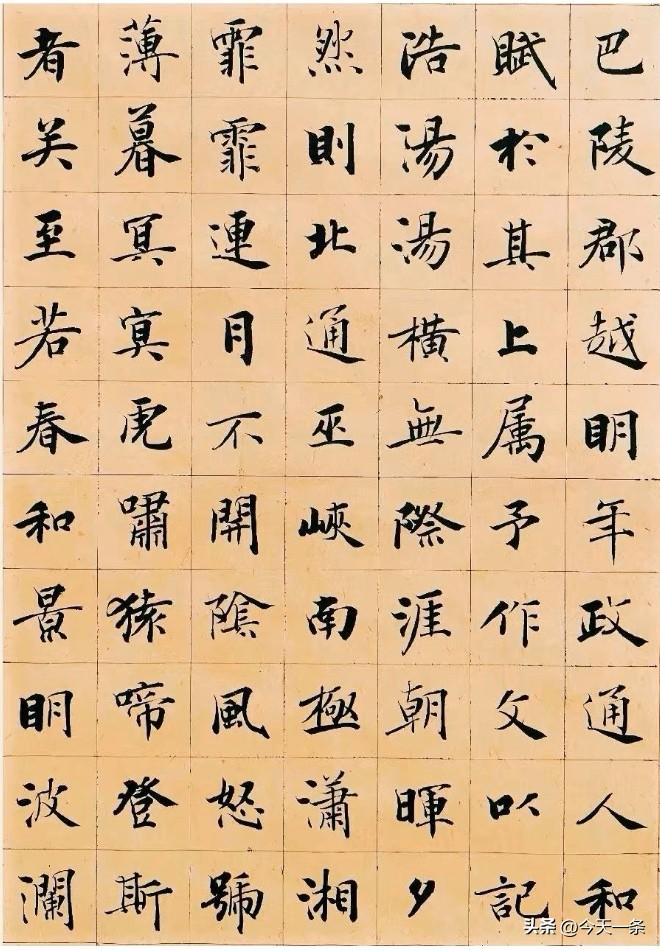 巴陵郡越明年政通人和
賦於其上属予作文以記
浩湯湯橫無際涯朝暉夕
然則北通巫峽南極瀟湘
霏霏連月不開陰風怒號
薄暮冥冥虎嘯猿啼登斯
者矣至若春和景明波瀾
头条 @今天一条